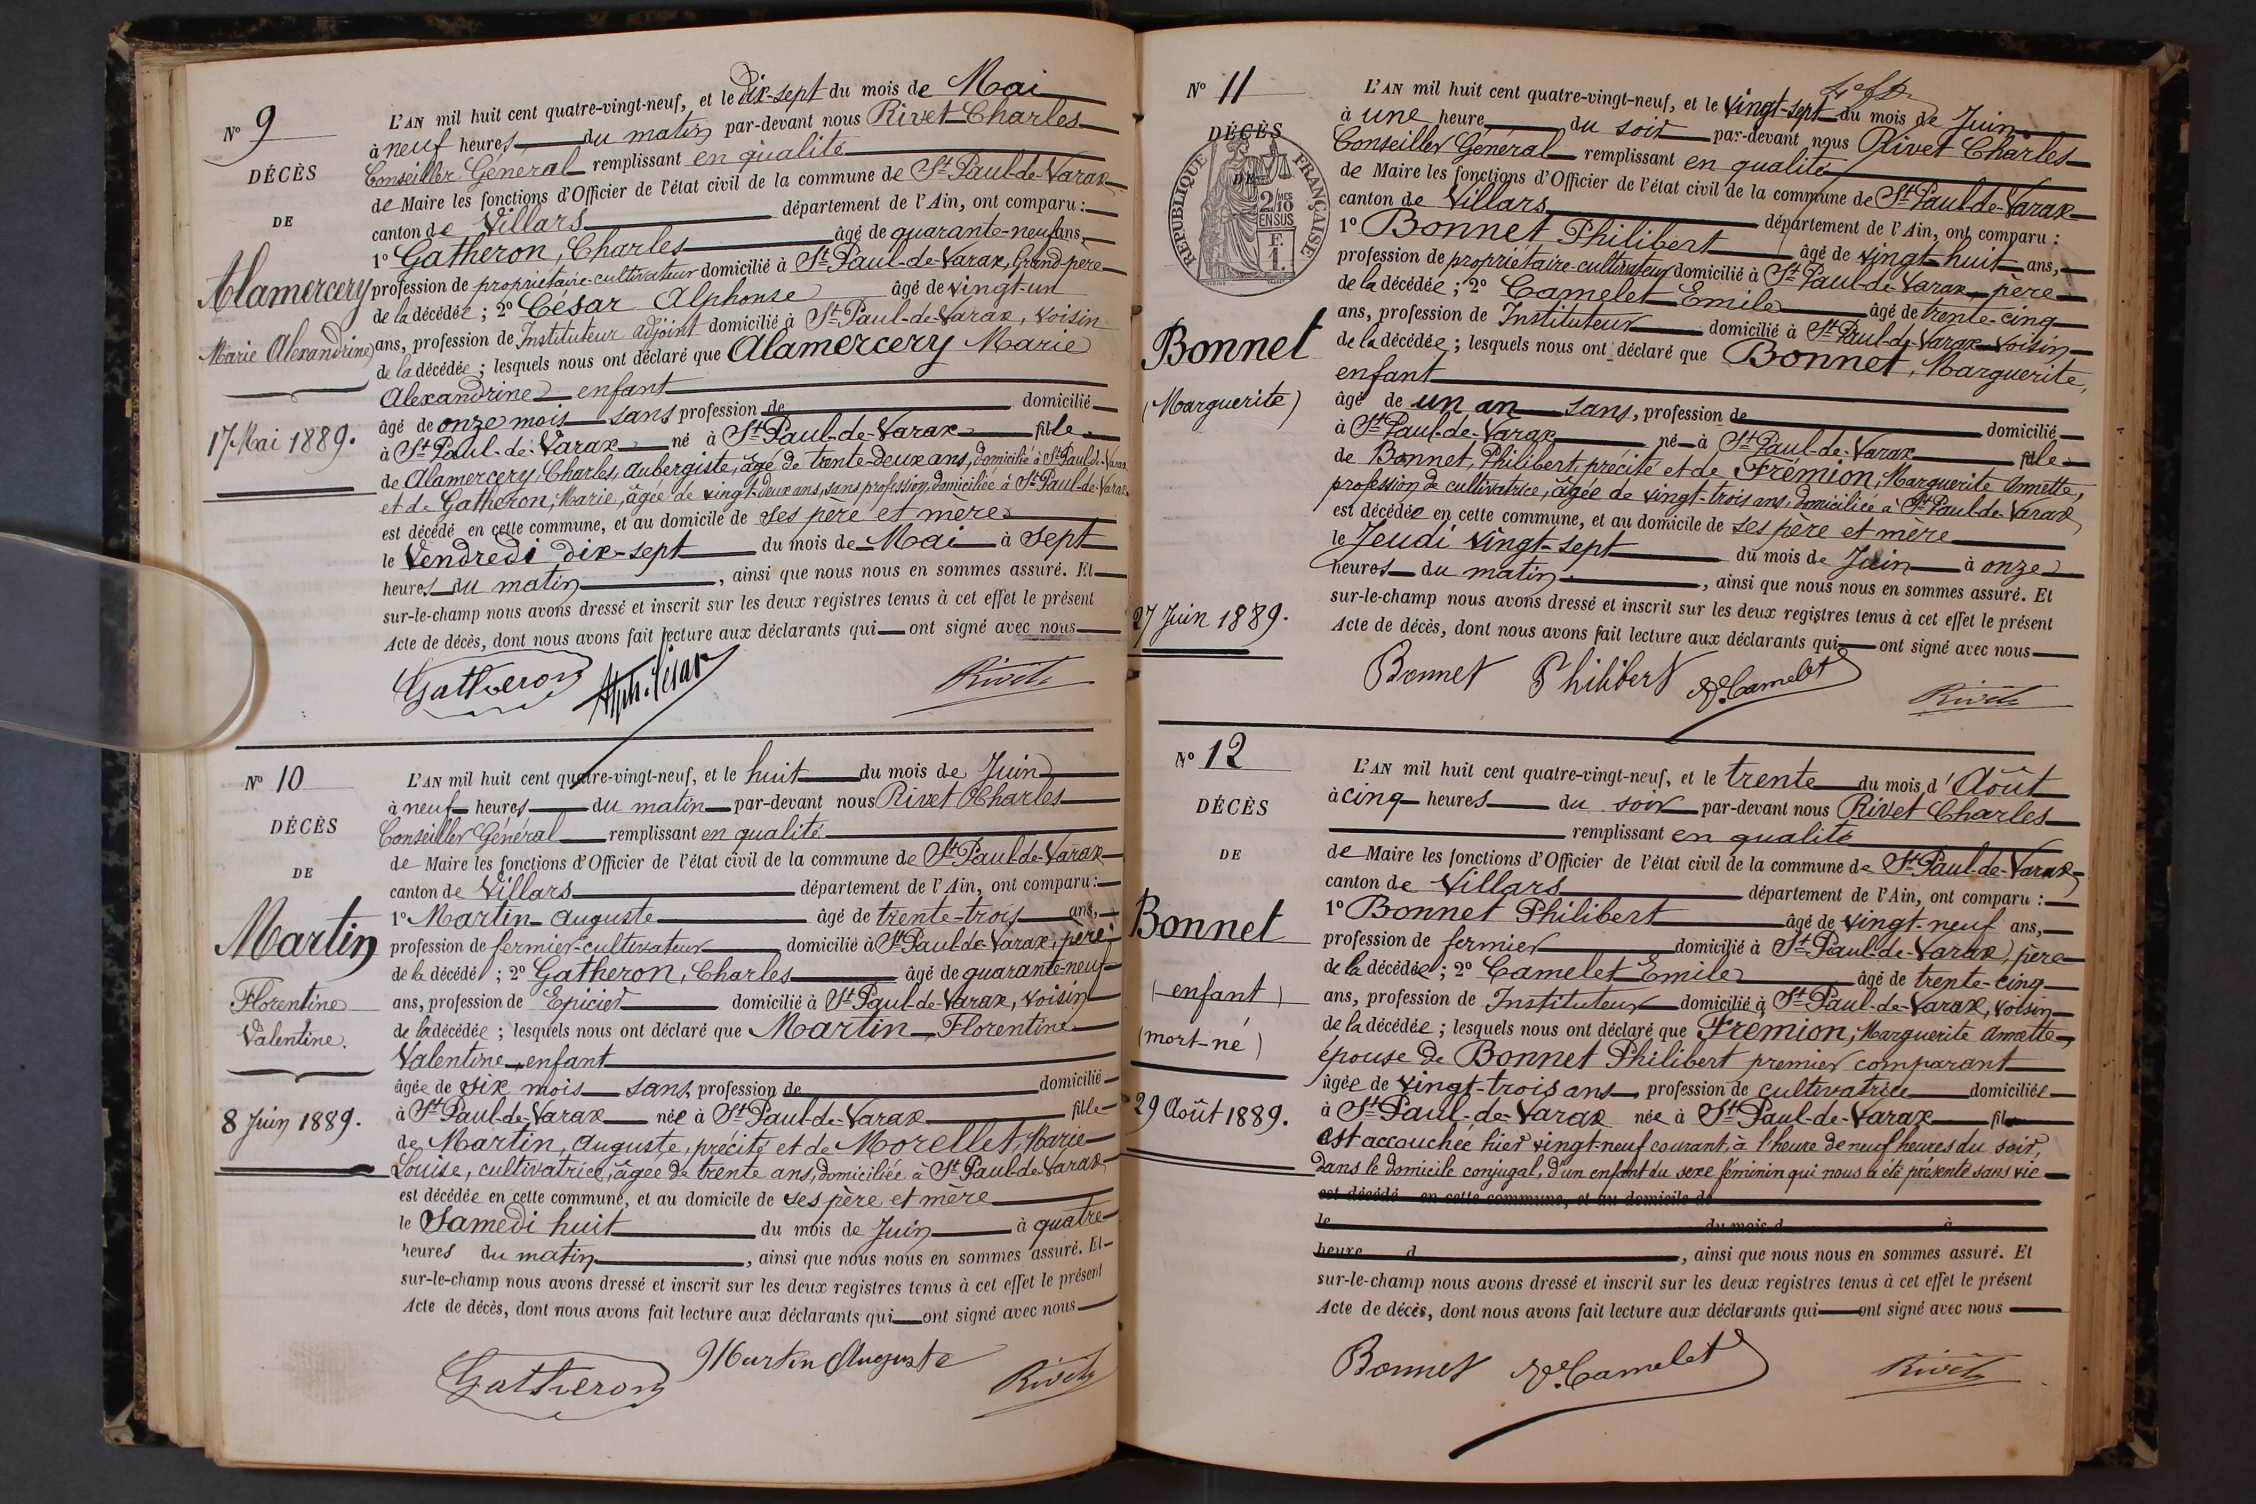 N° 9
DÉCÈS
DE
Alamercery
Marie Alexandrine
17 Mai 1889.
L'AN mil huit cent quatre-vingt-neuf, et le Dix-sept du mois de Mai
à neuf heures du matin par-devant nous Rivet Charles
Conseiller Général remplissant en qualité
de Maire les fonctions d'Officier de l'état civil de la commune de St-Paul-de-Varax
canton de Villars département de l'Ain, ont comparu :
1° Gatheron, Charles âgé de quarante-neuf ans,
profession de propriétaire-cultivateur domicilié à St-Paul-de-Varax, Grand-père
de la décédée ; 2° César Alphonse âgé de vingt-un
ans, profession de Instituteur adjoint domicilié à St-Paul-de-Varax, voisin
de la décédée ; lesquels nous ont déclaré que Alamercery Marie
Alexandrine enfant
âgé de onze mois sans profession de domicilié
à St-Paul-de-Varax né à St-Paul-de-Varax fille
de Alamercery, Charles, aubergiste, âgé de trente-deux ans, domicilié à St-Paul-de-Varax
et de Gatheron, Marie, âgée de vingt-deux ans, sans profession, domiciliée à St-Paul-de-Varax
est décédé en cette commune, et au domicile de ses père et mère
le Vendredi dix-sept du mois de Mai à sept
heures du matin, ainsi que nous nous en sommes assuré. Et
sur-le-champ nous avons dressé et inscrit sur les deux registres tenus à cet effet le présent
Acte de décès, dont nous avons fait lecture aux déclarants qui ont signé avec nous
Gatheron Alph. César Rivet
N° 10
DÉCÈS
DE
Martin
Florentine
Valentine.
8 Juin 1889.
L'AN mil huit cent quatre-vingt-neuf, et le huit du mois de Juin
à neuf heures du matin par-devant nous Rivet Charles
Conseiller Général remplissant en qualité
de Maire les fonctions d'Officier de l'état civil de la commune de St-Paul-de-Varax
canton de Villars département de l'Ain, ont comparu :
1° Martin Auguste âgé de trente-trois ans,
profession de fermier-cultivateur domicilié à St-Paul-de-Varax, père
de la décédé ; 2° Gatheron, Charles âgé de quarante-neuf
ans, profession de Epicier domicilié à St-Paul-de-Varax, voisin
de la décédée ; lesquels nous ont déclaré que Martin, Florentine
Valentine, enfant
âgée de six mois sans, profession de domicilié
à St-Paul-de-Varax née à St-Paul-de-Varax fille
de Martin, Auguste, précité et de Morellet, Marie
Louise, cultivatrice, âgée de trente ans, domiciliée à St-Paul-de-Varax,
est décédée en cette commune, et au domicile de ses père et mère
le Samedi huit du mois de Juin à quatre
heures du matin, ainsi que nous nous en sommes assuré. Et
sur-le-champ nous avons dressé et inscrit sur les deux registres tenus à cet effet le présent
Acte de décès, dont nous avons fait lecture aux déclarants qui ont signé avec nous
Gatheron Martin Auguste Rivet
N° 11
DÉCÈS
DE
RÉPUBLIQUE FRANÇAISE
2/10 MES
EN SUS
F.
1.
Bonnet
(Marguerite)
27 Juin 1889.
L'AN mil huit cent quatre-vingt-neuf, et le vingt-sept du mois de Juin
à une heure du soir par-devant nous Rivet Charles
Conseiller Général remplissant en qualité
de Maire les fonctions d'Officier de l'état civil de la commune de St-Paul-de-Varax
canton de Villars département de l'Ain, ont comparu :
1° Bonnet Philibert âgé de vingt-huit ans,
profession de propriétaire-cultivateur domicilié à St-Paul-de-Varax, père
de la décédée ; 2° Camelet Emile âgé de trente-cinq
ans, profession de Instituteur domicilié à St-Paul-de-Varax voisin
de la décédée ; lesquels nous ont déclaré que Bonnet, Marguerite,
enfant
âgé de un an sans, profession de domicilié
à St-Paul-de-Varax né à St-Paul-de-Varax fille
de Bonnet, Philibert, précité et de Frémion, Marguerite Annette,
profession de cultivatrice, âgée de vingt-trois ans, domiciliée à St-Paul-de-Varax
est décédée en cette commune, et au domicile de ses père et mère
le Jeudi vingt-sept du mois de Juin à onze
heures du matin, ainsi que nous nous en sommes assuré. Et
sur-le-champ nous avons dressé et inscrit sur les deux registres tenus à cet effet le présent
Acte de décès, dont nous avons fait lecture aux déclarants qui ont signé avec nous
Bonnet Philibert E. Camelet Rivet
N° 12
DÉCÈS
DE
Bonnet
(enfant)
(mort-né)
29 Août 1889.
L'AN mil huit cent quatre-vingt-neuf, et le trente du mois d'Août
à cinq heures du soir par-devant nous Rivet Charles
remplissant en qualité
de Maire les fonctions d'Officier de l'état civil de la commune de St-Paul-de-Varax
canton de Villars département de l'Ain, ont comparu :
1° Bonnet Philibert âgé de vingt-neuf ans,
profession de fermier domicilié à St-Paul-de-Varax, père
de la décédée ; 2° Camelet Emile âgé de trente-cinq
ans, profession de Instituteur domicilié à St-Paul-de-Varax, voisin
de la décédée ; lesquels nous ont déclaré que Fremion, Marguerite Annette,
épouse de Bonnet Philibert premier comparant
âgée de vingt-trois ans profession de cultivatrice domiciliée
à St-Paul-de-Varax née à St-Paul-de-Varax fil
est accouchée hier vingt-neuf courant, à l'heure de neuf heures du soir,
dans le domicile conjugal, d'un enfant du sexe féminin qui nous a été présenté sans vie
est décédé en cette commune, et au domicile de
le du mois d à
heure d, ainsi que nous nous en sommes assuré. Et
sur-le-champ nous avons dressé et inscrit sur les deux registres tenus à cet effet le présent
Acte de décès, dont nous avons fait lecture aux déclarants qui ont signé avec nous
Bonnet E. Camelet Rivet